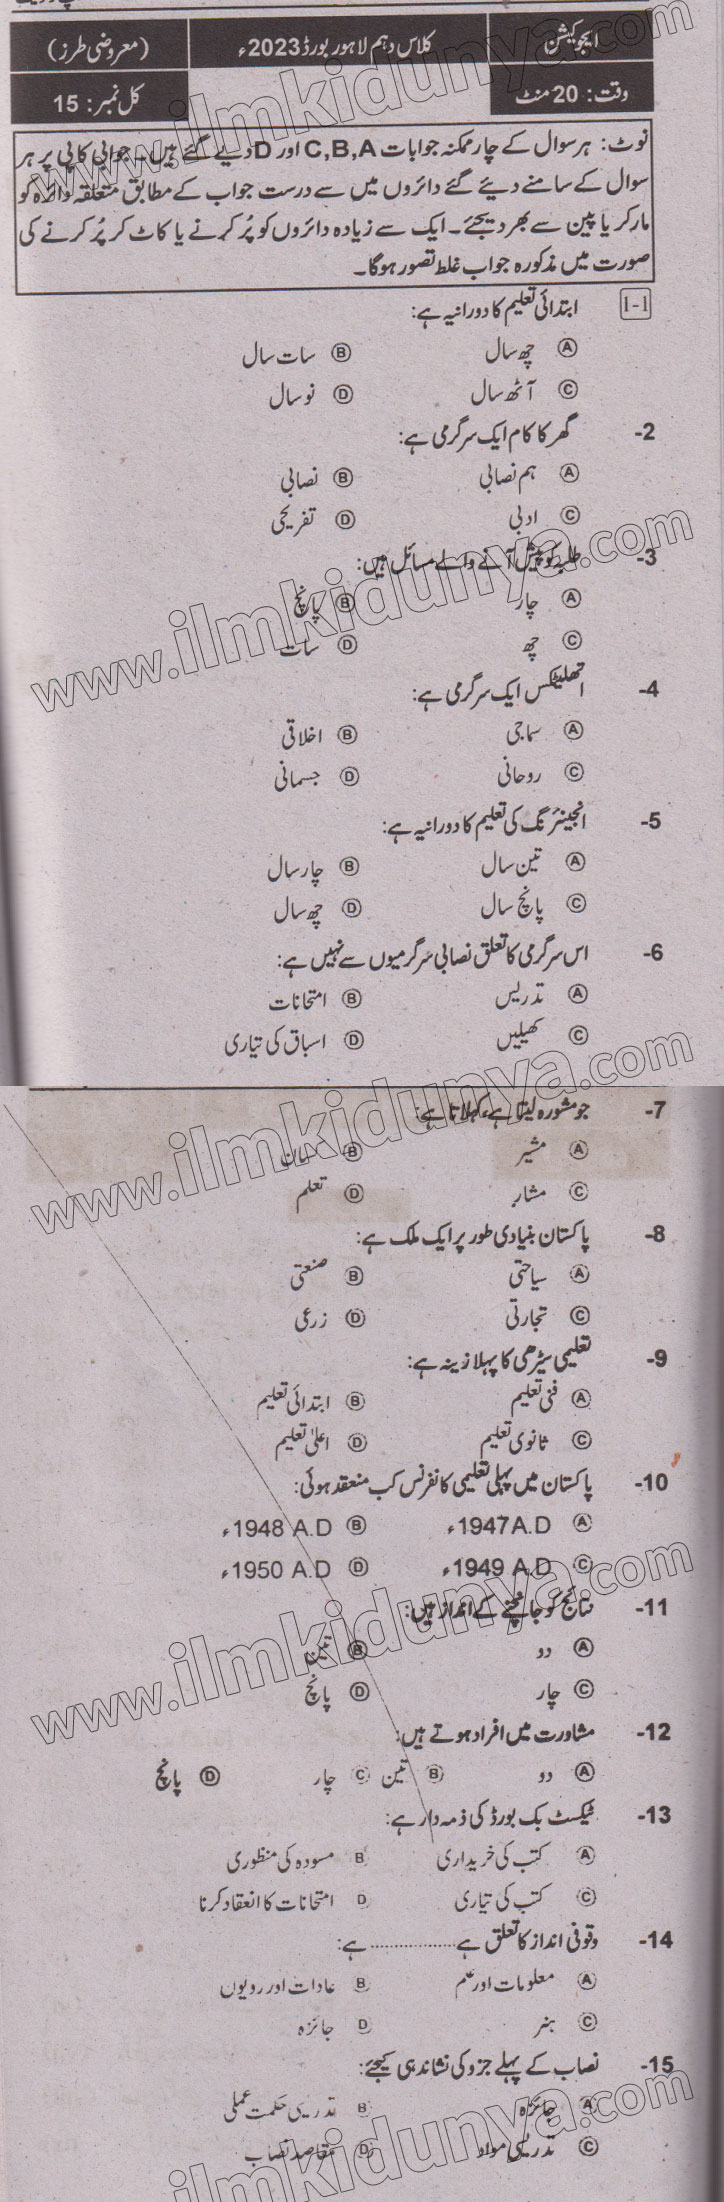 ایجوکیشن
کلاس دہم لاہور بورڈ 2023ء
(معروضی طرز)
وقت: 20 منٹ
کل نمبر: 15
نوٹ: ہر سوال کے چار ممکنہ جوابات C,B,A اور D دیے گئے ہیں۔ جوابی کاپی پر ہر
سوال کے سامنے دیئے گئے دائروں میں سے درست جواب کے مطابق متعلقہ دائرہ کو
مارکر یا پین سے بھر دیجئے۔ ایک سے زیادہ دائروں کو پُر کرنے یا کاٹ کر پُر کرنے کی
صورت میں مذکورہ جواب غلط تصور ہوگا۔
1-1 ابتدائی تعلیم کا دورانیہ ہے:
A چھ سال B سات سال
C آٹھ سال D نو سال
2- گھر کا کام ایک سرگرمی ہے:
A ہم نصابی B نصابی
C ادبی D تفریحی
3- طلبہ کو پیش آنے والے مسائل ہیں:
A چار B پانچ
C چھ D سات
4- اتھلیٹکس ایک سرگرمی ہے:
A سماجی B اخلاقی
C روحانی D جسمانی
5- انجینئرنگ کی تعلیم کا دورانیہ ہے:
A تین سال B چار سال
C پانچ سال D چھ سال
6- اس سرگرمی کا تعلق نصابی سرگرمیوں سے نہیں ہے:
A تدریس B امتحانات
C کھیلیں D اسباق کی تیاری
7- جو مشورہ لیتا ہے، کہلاتا ہے:
A مشیر B
C مشار D تعلم
8- پاکستان بنیادی طور پر ایک ملک ہے:
A سیاحتی B صنعتی
C تجارتی D زرعی
9- تعلیمی سیڑھی کا پہلا زینہ ہے:
A فنی تعلیم B ابتدائی تعلیم
C ثانوی تعلیم D اعلیٰ تعلیم
10- پاکستان میں پہلی تعلیمی کانفرنس کب منعقد ہوئی:
A 1947 A.D ء B 1948 A.D ء
C 1949 A.D ء D 1950 A.D ء
11- نتائج کو جانچنے کے انداز ہیں:
A دو B تین
C چار D پانچ
12- مشاورت میں افراد ہوتے ہیں:
A دو B تین C چار D پانچ
13- ٹیکسٹ بک بورڈ کی ذمہ دار ہے:
A کتب کی خریداری B مسودہ کی منظوری
C کتب کی تیاری D امتحانات کا انعقاد کرنا
14- وقوفی انداز کا تعلق ہے .................. ہے:
A معلومات اور علم B عادات اور رویوں
C ہنر D جائزہ
15- نصاب کے پہلے جزو کی نشاندہی کیجئے:
A جائزہ B تدریسی حکمت عملی
C تدریسی مواد D مقاصد نصاب
www.ilmkidunya.com
www.ilmkidunya.com
www.ilmkidunya.com
www.ilmkidunya.com
www.ilmkidunya.com